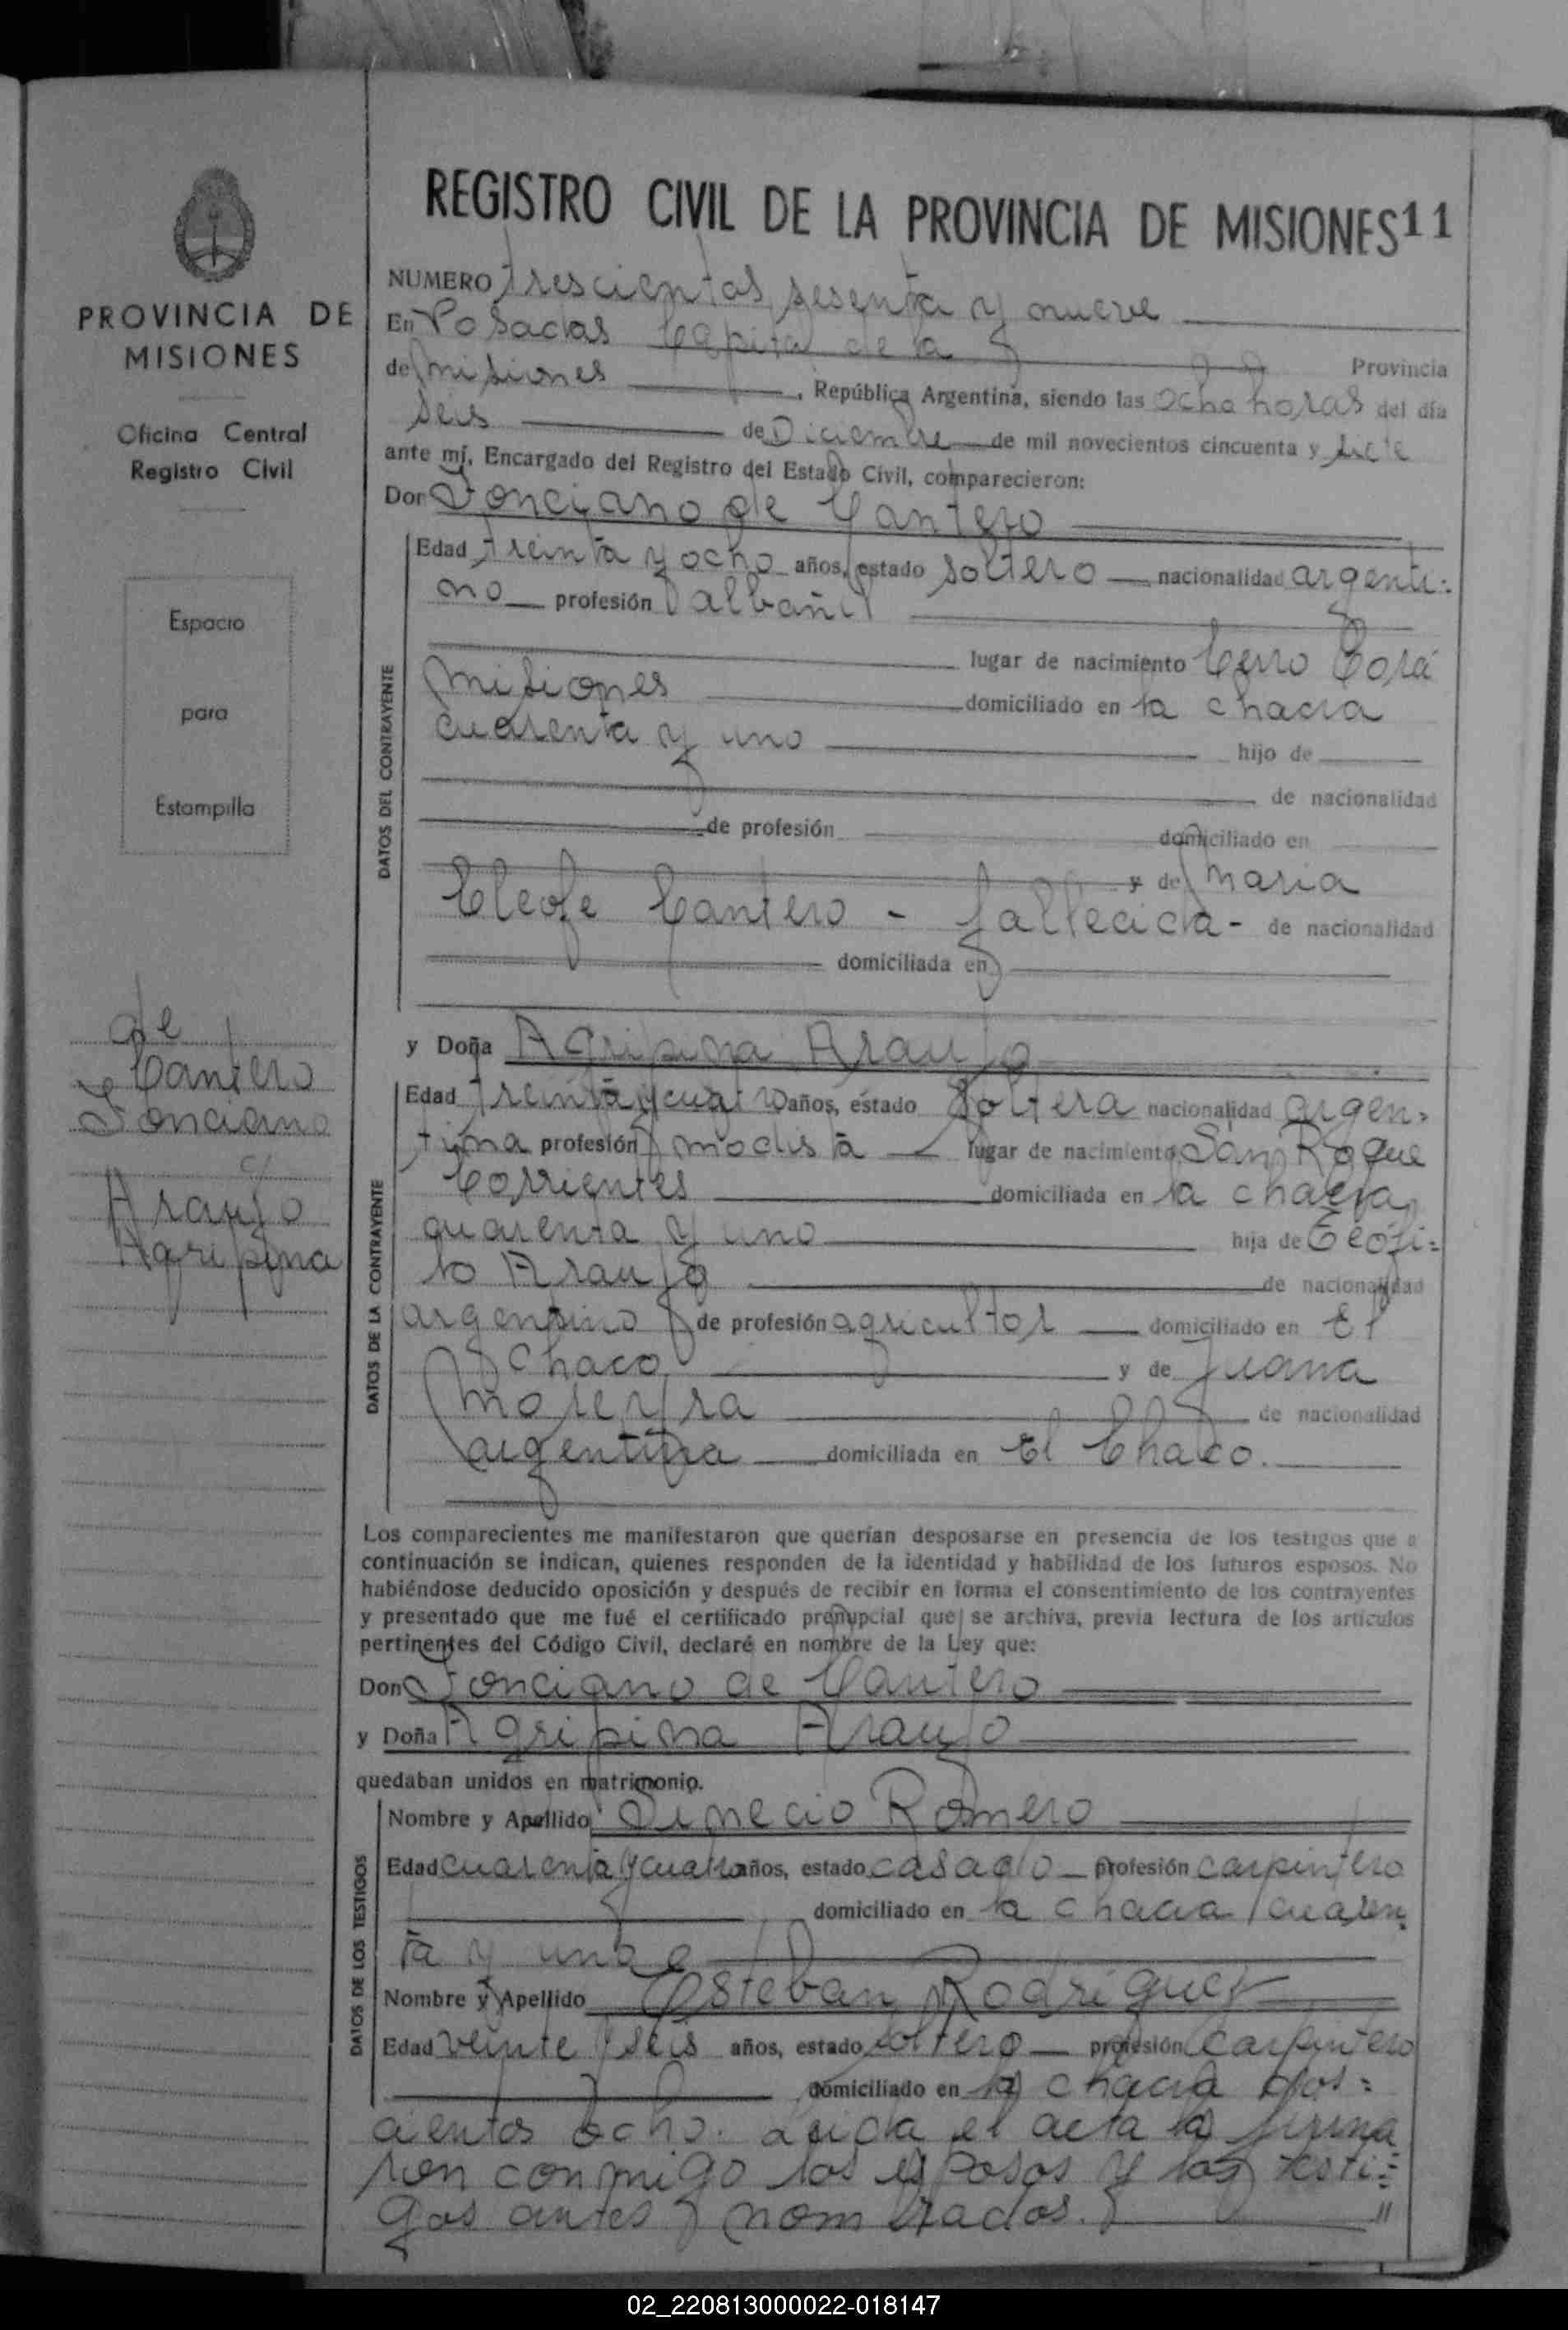 REGISTRO CIVIL DE LA PROVINCIA DE MISIONES 11
PROVINCIA DE
MISIONES
Oficina Central
Registro Civil
Espacio
para
Estampilla
de
Cantero
Ponciano
c/
Araujo
Agripina
NUMERO trescientos sesenta y nueve
En Posadas Capital de la Provincia
de Misiones, República Argentina, siendo las ocho horas del día
seis de Diciembre de mil novecientos cincuenta y siete
ante mí, Encargado del Registro del Estado Civil, comparecieron:
Don Ponciano de Cantero
DATOS DEL CONTRAYENTE
Edad treinta y ocho años, estado soltero nacionalidad argenti=
no profesión albañil
lugar de nacimiento Cerro Corá
Misiones domiciliado en la chacra
cuarenta y uno hijo de
de nacionalidad
de profesión domiciliado en
y de Maria
Cleofe Cantero - fallecida - de nacionalidad
domiciliada en
y Doña Agripina Araujo
DATOS DE LA CONTRAYENTE
Edad treinta y cuatro años, estado soltera nacionalidad argen=
tina profesión modista lugar de nacimiento San Roque
Corrientes domiciliada en la chacra
cuarenta y uno hija de Teófi=
lo Araujo de nacionalidad
argentino de profesión agricultor domiciliado en El
Chaco y de Juana
Moreyra de nacionalidad
argentina domiciliada en El Chaco.
Los comparecientes me manifestaron que querían desposarse en presencia de los testigos que a
continuación se indican, quienes responden de la identidad y habilidad de los futuros esposos. No
habiéndose deducido oposición y después de recibir en forma el consentimiento de los contrayentes
y presentado que me fué el certificado prenupcial que se archiva, previa lectura de los artículos
pertinentes del Código Civil, declaré en nombre de la Ley que:
Don Ponciano de Cantero
y Doña Agripina Araujo
quedaban unidos en matrimonio.
DATOS DE LOS TESTIGOS
Nombre y Apellido Romero
Edad cuarenta y cuatro años, estado casado profesión carpintero
domiciliado en la chacra cuaren=
ta y uno
Nombre y Apellido Esteban Rodriguez
Edad veinte y seis años, estado soltero profesión carpintero
domiciliado en la chacra dos=
cientos ocho. Leida el acta la firma
ron conmigo los esposos y los testi=
gos antes nombrados. "
02_220813000022-018147